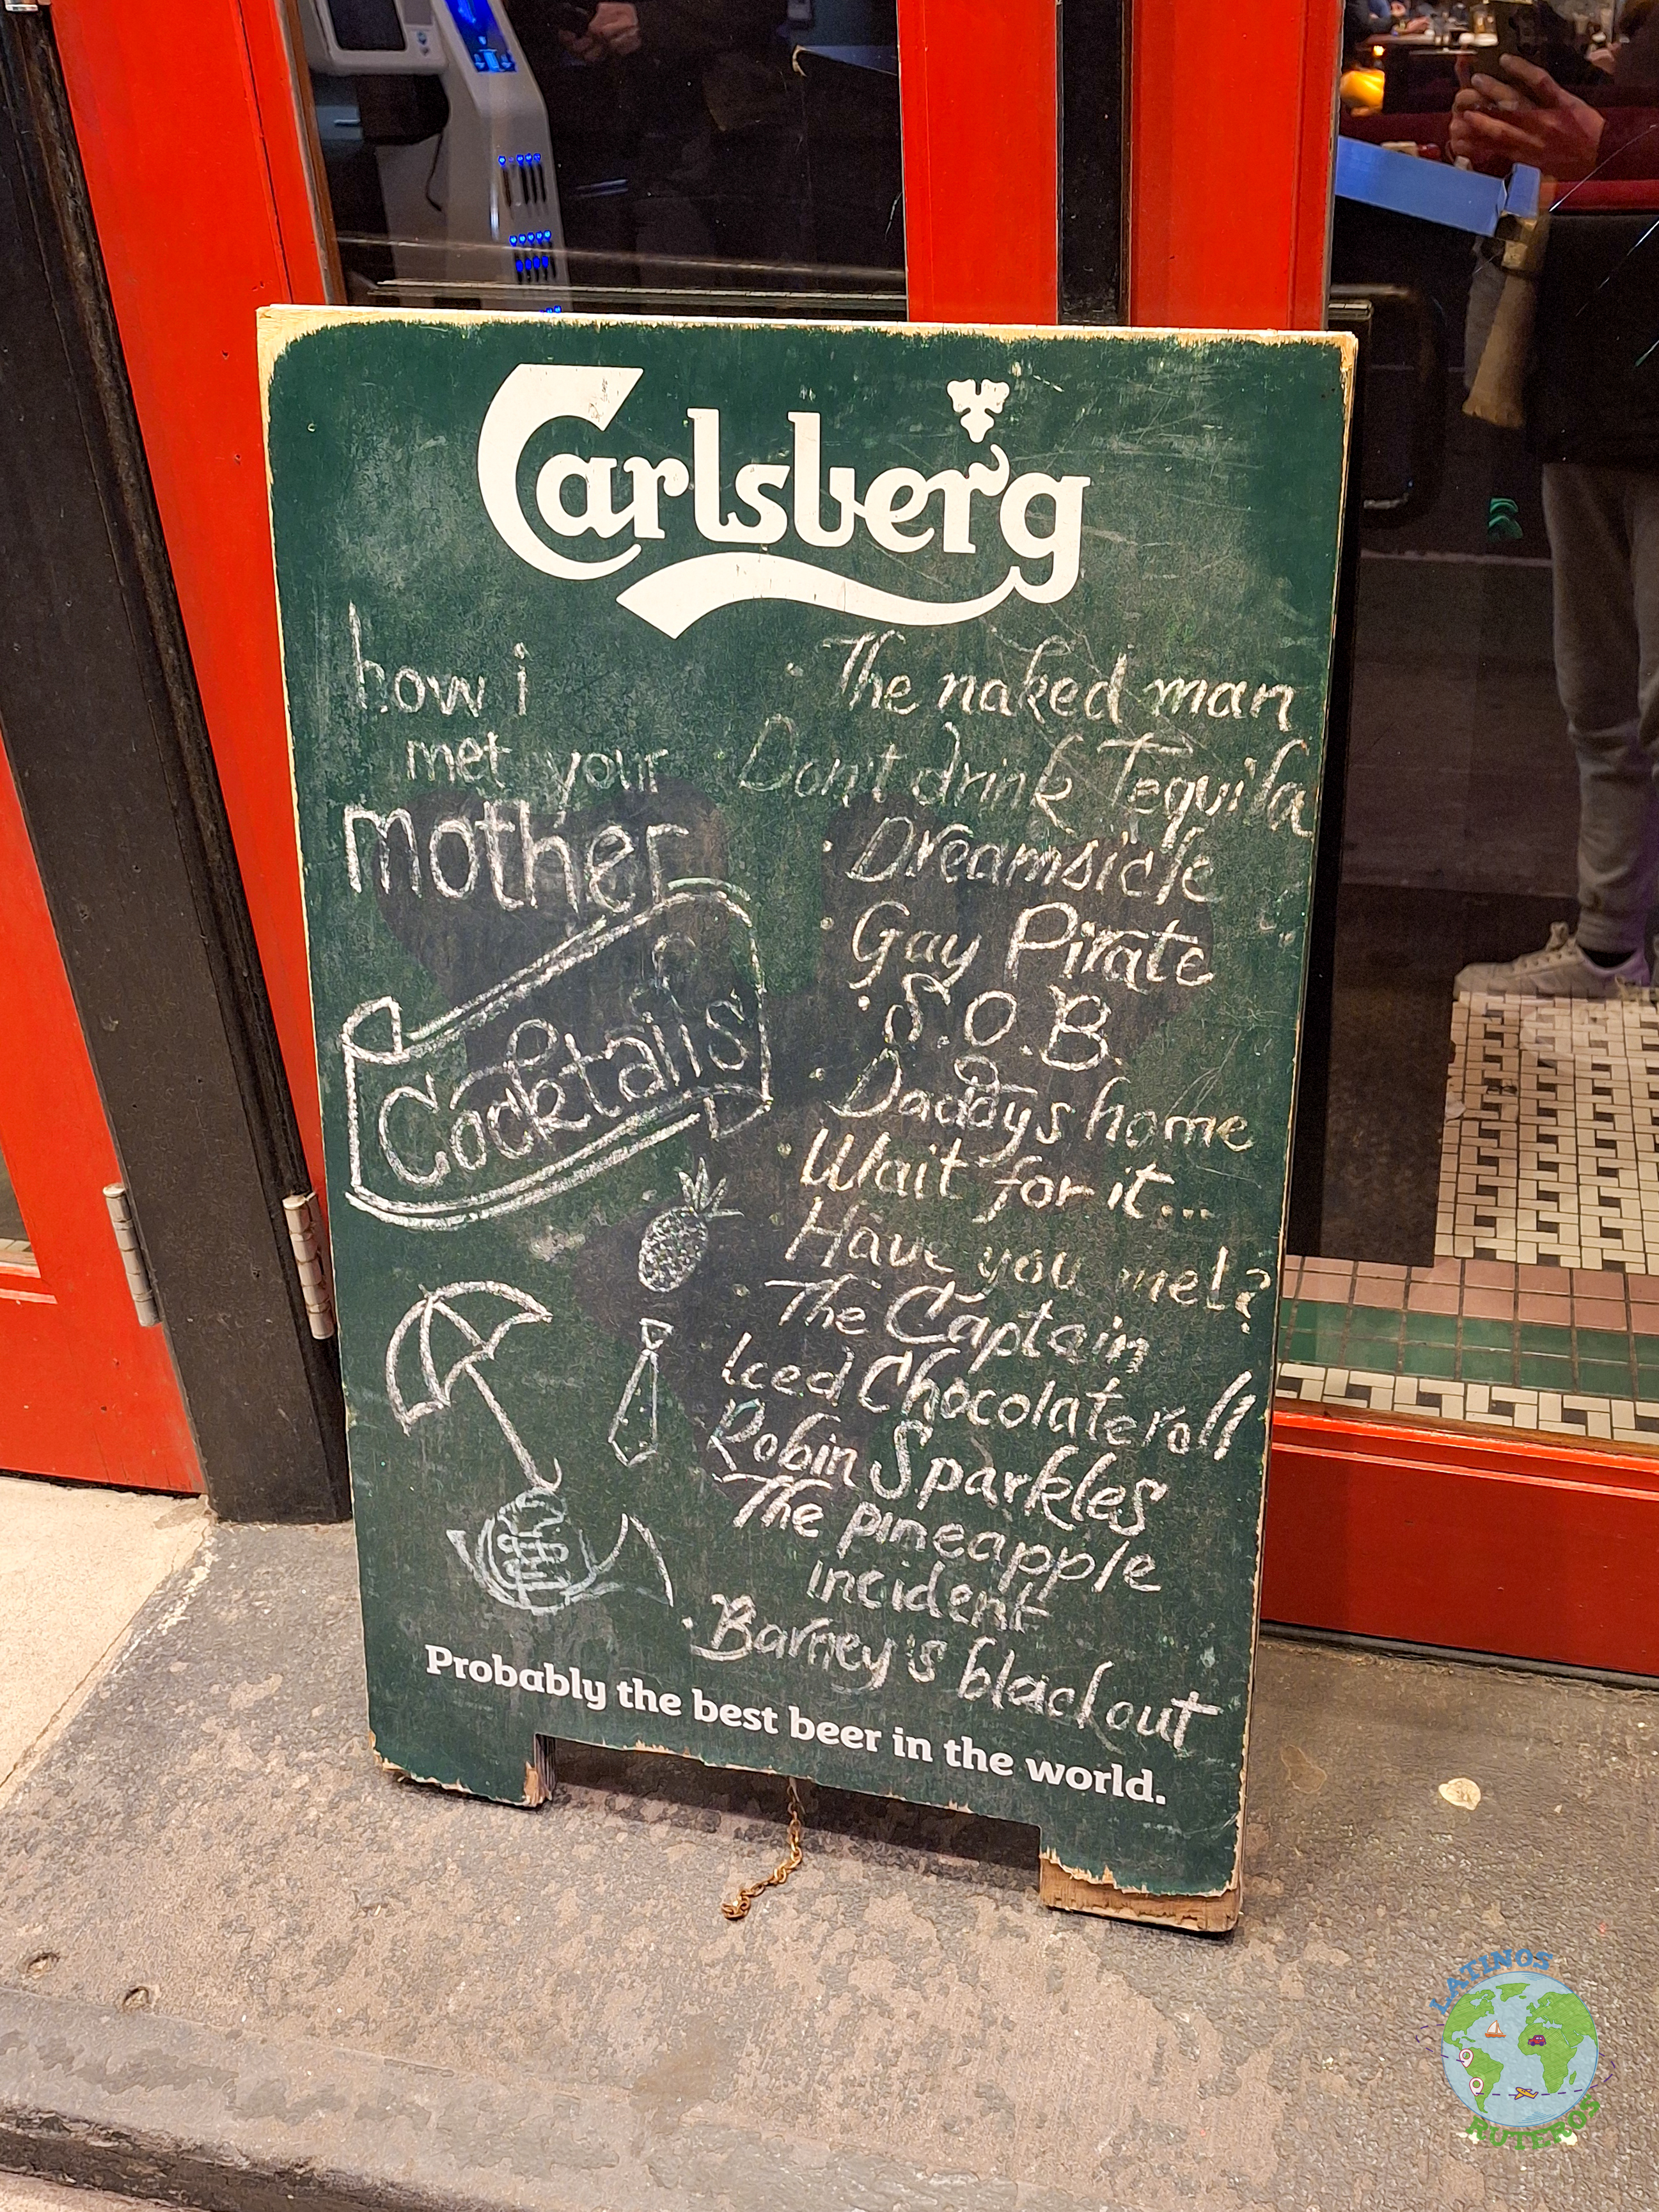 Carlsberg
how i
met your
mother
Cocktails
· The naked man
· Don't drink Tequila
· Dreamsicle
· Gay Pirate
· S.O.B.
· Daddys home
· Wait for it...
Have you met?
· The Captain
Iced Chocolateroll
Robin Sparkles
The pineapple
incident
· Barney's blackout
Probably the best beer in the world.
LATINOS
RUTEROS